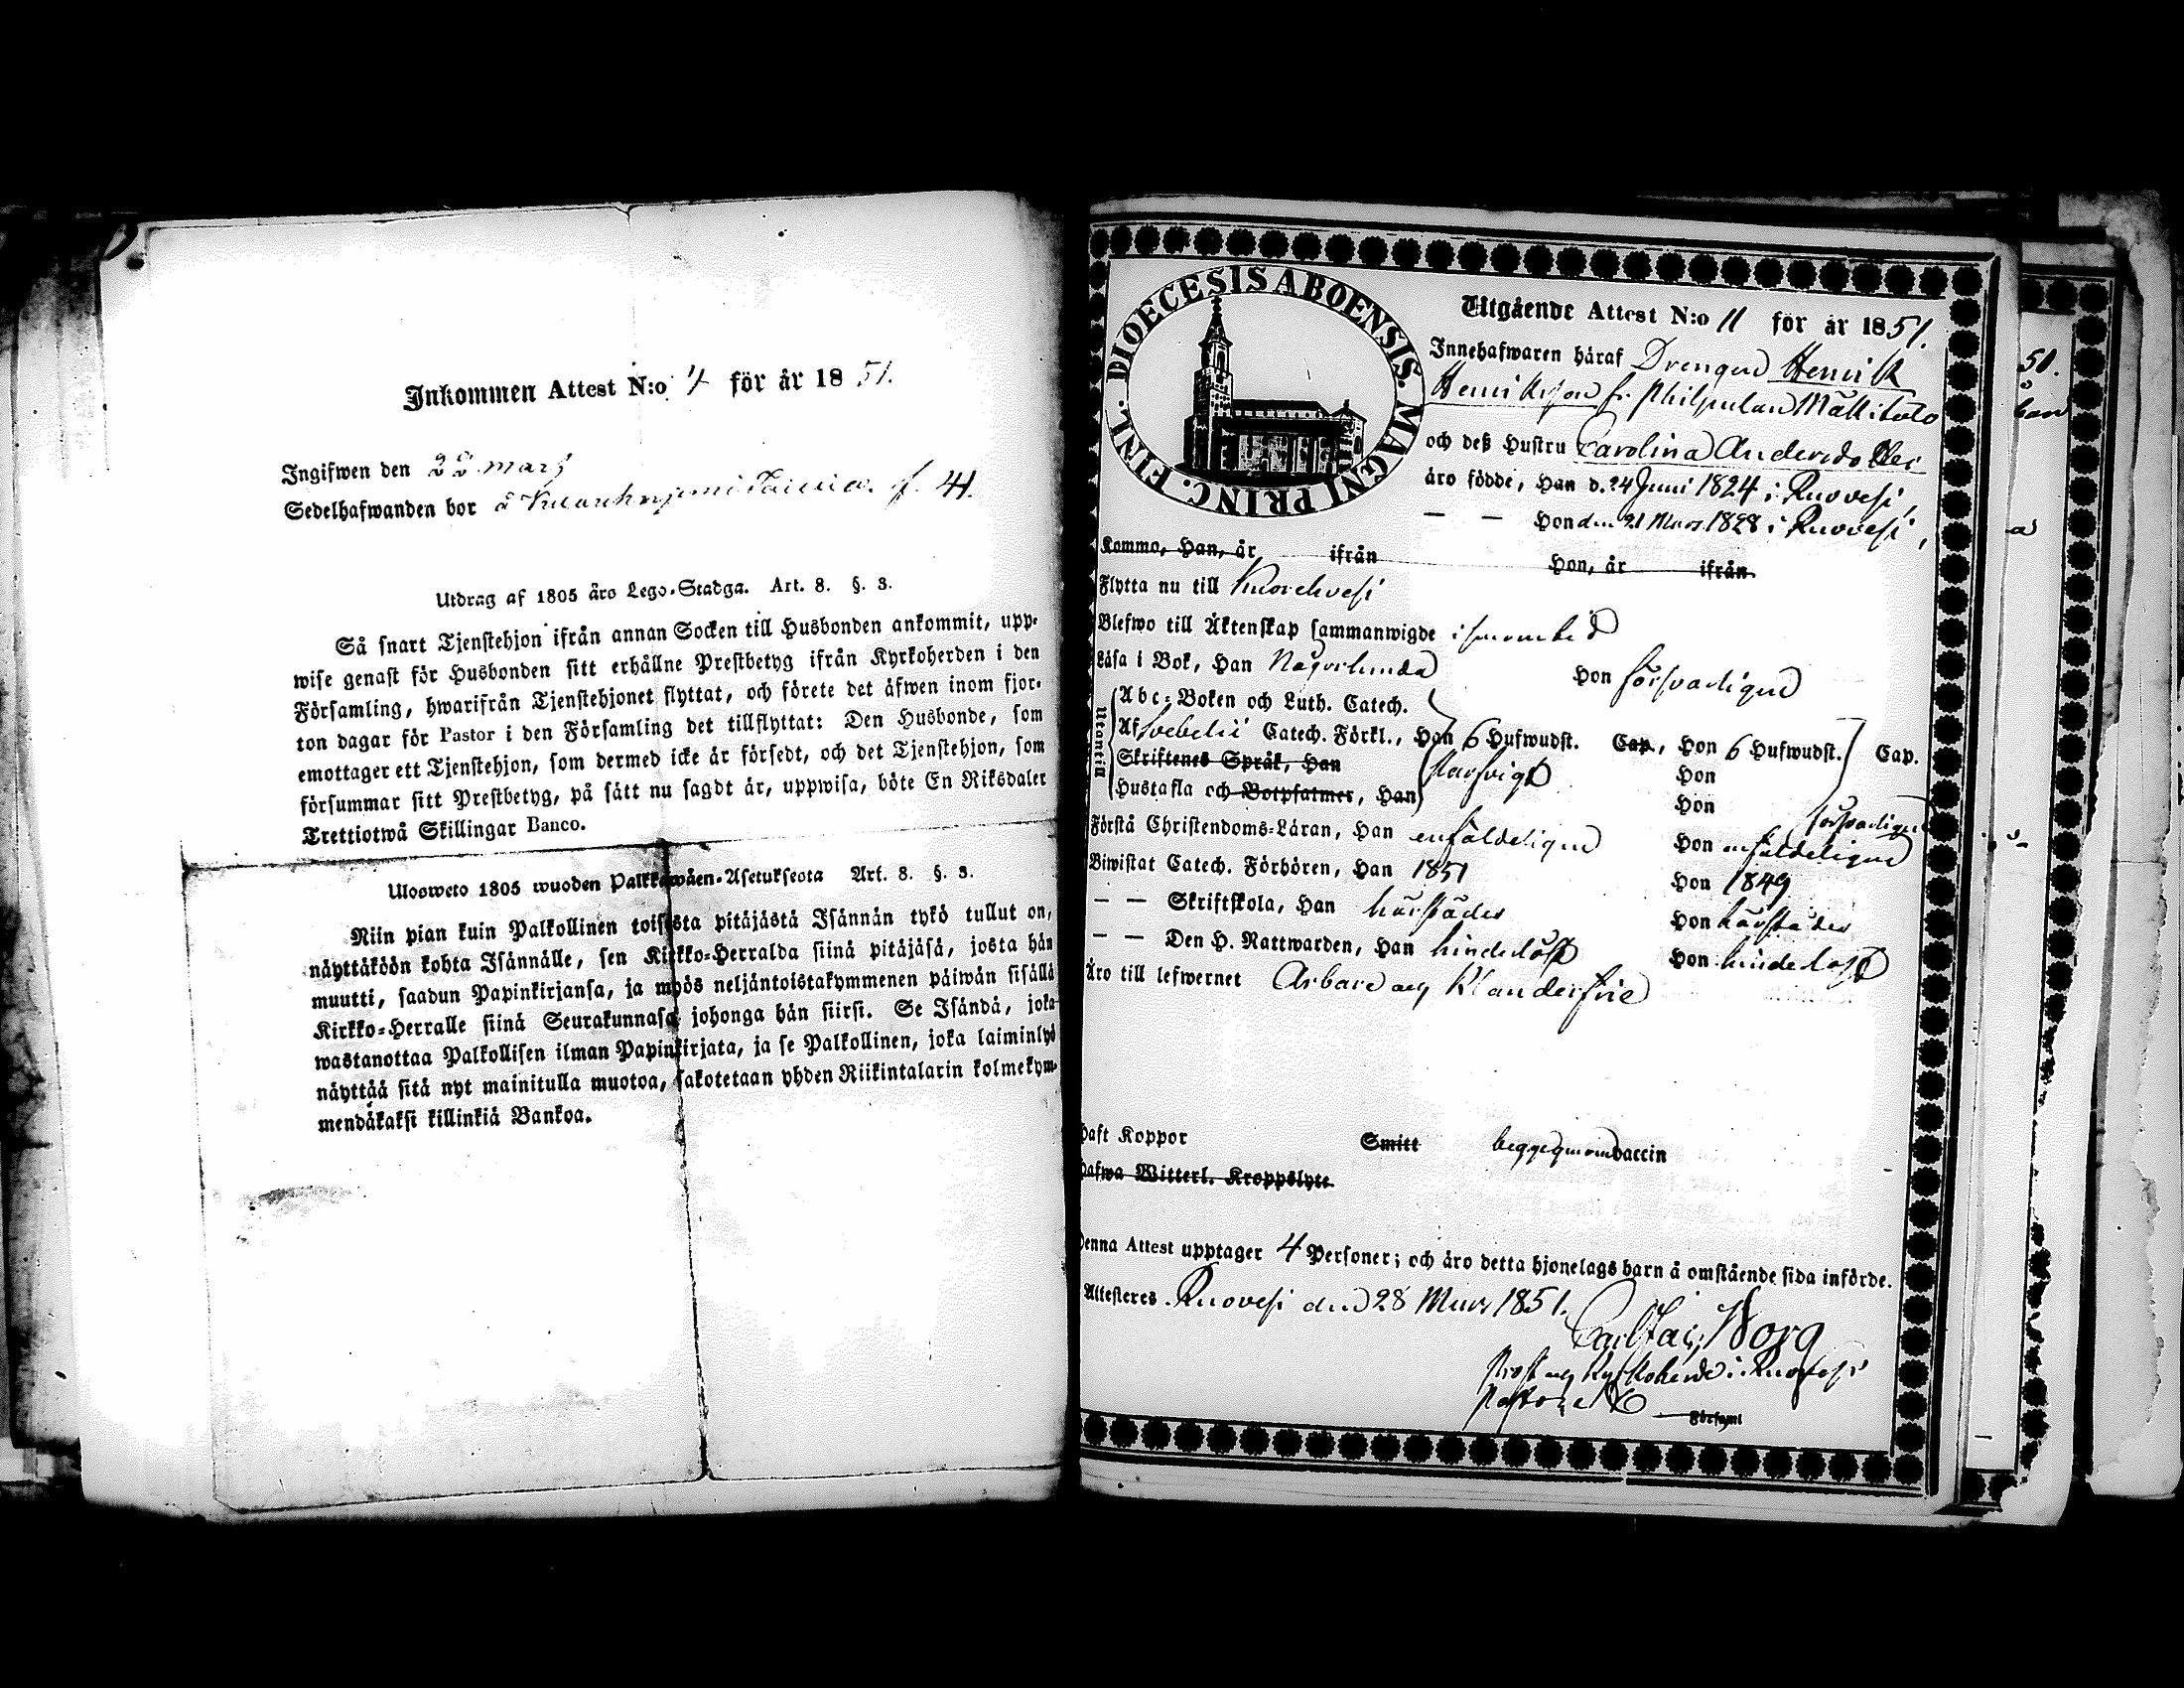 Inkommen Attest N:o 4 för år 1851.
Ingifwen den 22 mars
Sedelhafwanden bor å f. 41.
Utdrag af 1805 års Lego-Stadga. Art. 8. §. 3.
Så snart Tjenstehjon ifrån annan Socken till Husbonden ankommit, upp-
wise genast för Husbonden sitt erhållne Prestbetyg ifrån Kyrkoherden i den
Församling, hwarifrån Tjenstehjonet flyttat, och förete det äfwen inom fjor-
ton dagar för Pastor i den Församling det tillflyttat: Den Husbonde, som
emottager ett Tjenstehjon, som dermed icke är försedt, och det Tjenstehjon, som
försummar sitt Prestbetyg, på sätt nu sagdt är, uppwisa, böte En Riksdaler
Trettiotwå Skillingar Banco.
Ulosweto 1805 wuoden Palkkawäen-Asetuksesta Art. 8. §. 3.
Niin pian kuin Palkollinen toisesta pitäjästä Isännän tykö tullut on,
näyttäköön kohta Isännälle, sen Kirkko-Herralda siinä pitäjäsä, josta hän
muutti, saadun Papinkirjansa, ja myös neljäntoistakymmenen päiwän sisällä
Kirkko-Herralle siinä Seurakunnasa johonga hän siirsi. Se Isändä, joka
wastanottaa Palkollisen ilman Papinkirjata, ja se Palkollinen, joka laiminlyö
näyttää sitä nyt mainitulla muotoa, sakotetaan yhden Riikintalarin kolmekym-
mendäkaksi killinkiä Bankoa.
DIOECESIS ABOENSIS. MAGNI PRINC. FINL.
Utgående Attest N:o 11 för år 1851.
Innehafwaren häraf Drengen Henrik
Henriksson fr. Philpulan Mattitalo
och deß Hustru Carolina Andersdotter
äro födde, Han d. 24 Juni 1824 i Ruovesi,
— — Hon den 21 Mars 1828 i Ruovesi,
Kommo, Han, år ifrån Hon, år ifrån
Flytta nu till Kuorehvesi
Blefwo till Äktenskap sammanwigde
Läsa i Bok, Han Någorlunda Hon försvarligen
Utantill
Abc-Boken och Luth. Catech.
Af Svebelii Catech. Förkl., Han 6 Hufwudst. Cap., Hon 6 Hufwudst. Cap.
Skriftenes Språk, Han Hon
Hustafla och Botpsalmer, Han Hon försvarligen
Förstå Christendoms-Läran, Han enfaldeligen Hon enfaldeligen
Biwistat Catech. Förhören, Han 1851 Hon 1849
— — Skriftskola, Han härstädes Hon härstädes
— — Den H. Nattwarden, Han hinderlöst Hon hinderlöst
Äro till lefwernet Ärbare och Klanderfrie
Haft Koppor Smitt begge genom vaccin
Hafwa Witterl. Kroppslyte
Denna Attest upptager 4 Personer; och äro detta hjonelags barn å omstående sida införde.
Attesteres Ruovesi den 28 Mars 1851.
Borg
Prost och Kyrkoherde i Ruovesi
Pastorat
Församl